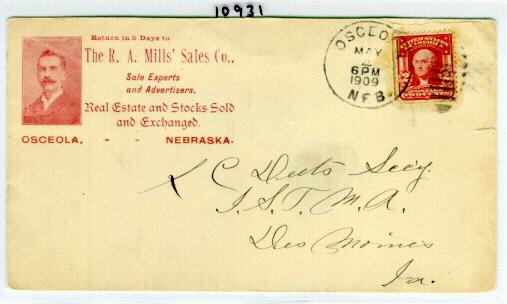 10931
Return in 5 Days to
The R. A. Mills' Sales Co.,
Sale Experts
and Advertisers.
Real Estate and Stocks Sold
and Exchanged.
OSCEOLA, - - NEBRASKA.
OSCEOLA
MAY
2
6PM
1909
NEB.
C Deets Secy.
I.S.T.M.A.
Des Moines
Ia.